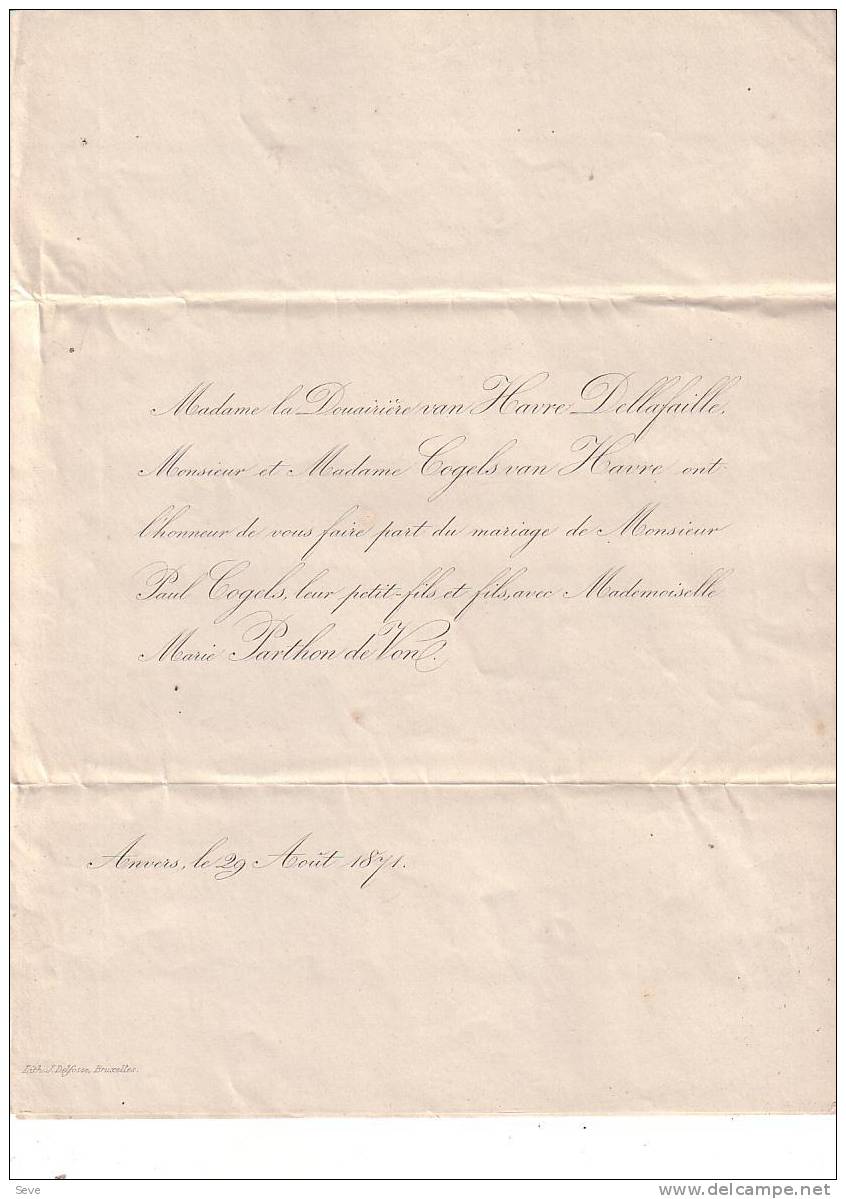 Madame la Douairière van Havre Dellafaille,
Monsieur et Madame Cogels van Havre ont
l'honneur de vous faire part du mariage de Monsieur
Paul Cogels, leur petit-fils et fils, avec Mademoiselle
Marie Parthon de Von.
Anvers, le 29 Août 1871.
Lith. J. Delfosse, Bruxelles.
Seve
delcampe.net